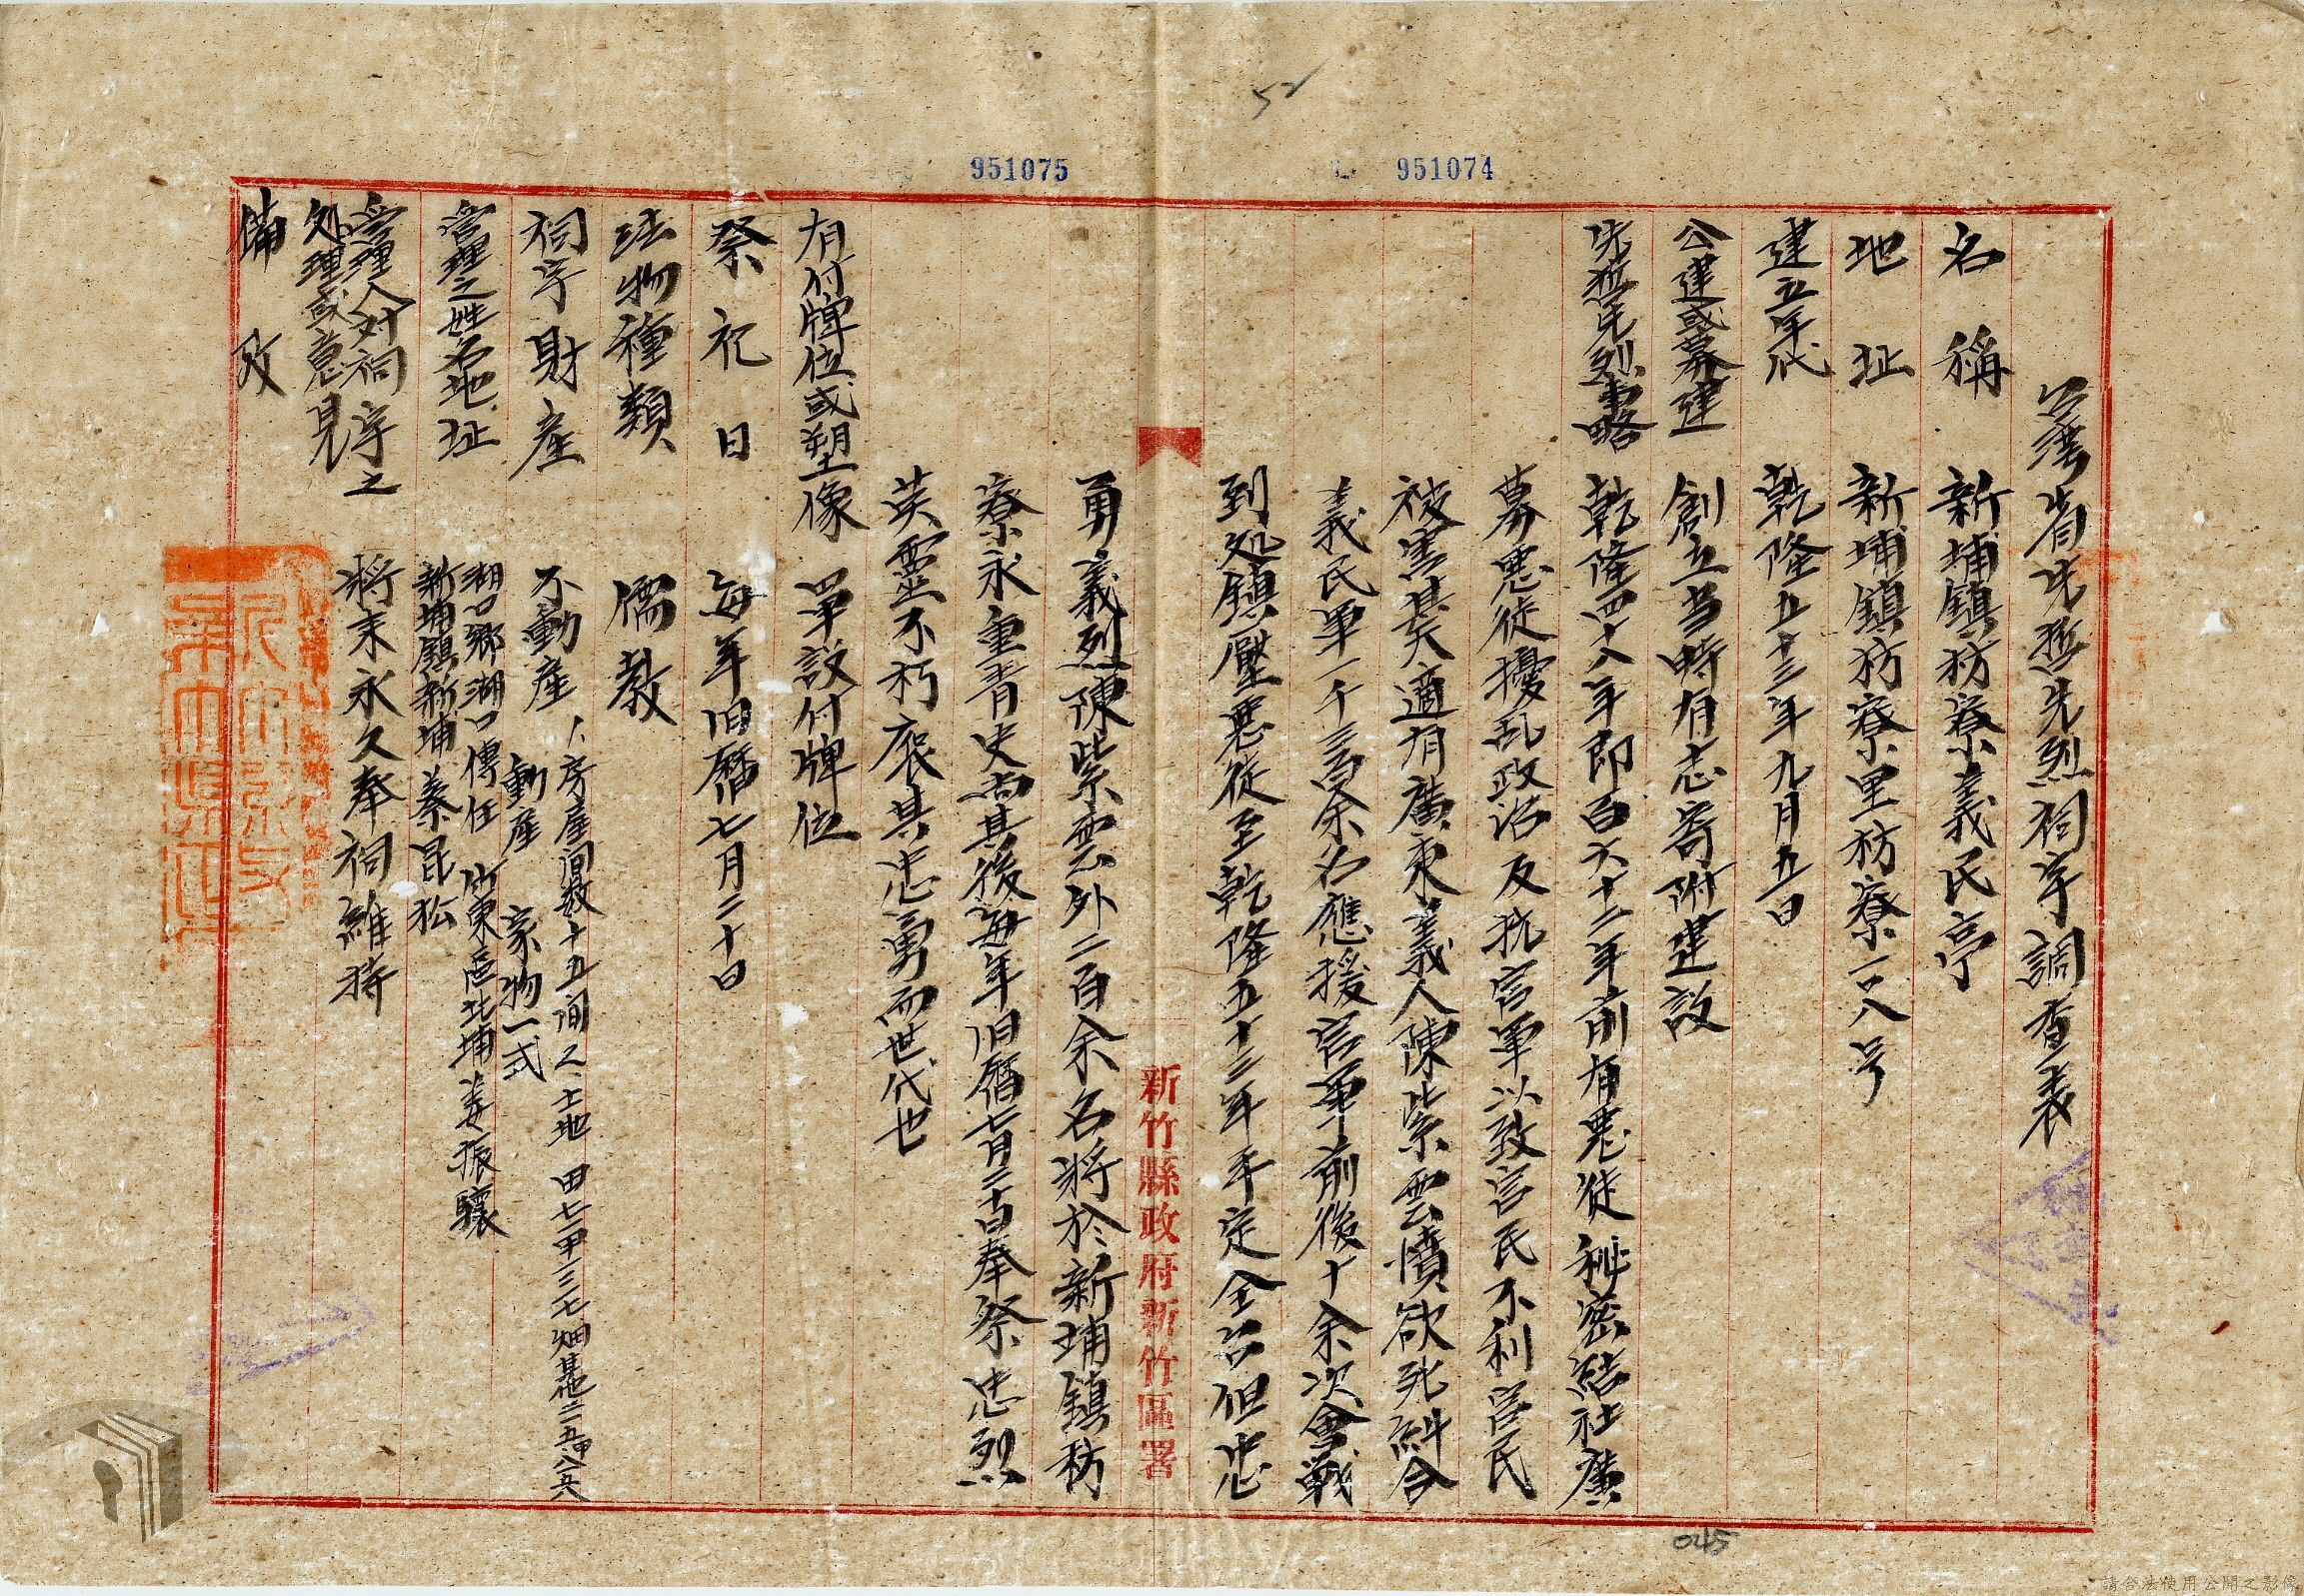 52
951075
951074
台湾省先哲先烈祠宇調查表
名稱 新埔鎮枋寮義民亭
地址 新埔鎮枋寮里枋寮一八号
建立年代 乾隆五十三年九月五日
公建或募建 創立当時有志寄附建設
先哲先烈事略 乾隆四十八年即百六十二年前有悪徒秘密結社廣
募悪徒擾乱政治反抗官軍以致官民不利官民
被害甚大適有廣東義人陳紫雲憤欲死糾合
義民軍一千三百余名應援官軍前後十余次會戦
到処鎮壓悪徒至乾隆五十三年平定全台但忠
新竹縣政府新竹區署
勇義烈陳紫雲外二百余名将於新埔鎮枋
寮永重青史尚其後每年旧曆七月二十日奉祭忠烈
英靈不朽褒其忠勇而世代也
有付牌位或塑像 單設付牌位
祭祀日 每年旧曆七月二十日
法物種類 儒教
祠宇財產 不動產 1、房屋間数十五間 2、土地 田七甲三三七 畑其他二五甲八六八
動產 家物一式
管理之姓名地址 湖口鄉湖口傳任 竹東區北埔姜振驤
新埔鎮新埔 蔡昆松
管理人対祠宇之
処理或意見 将来永久奉祠維持
備攷
045
請合法使用公開之影像